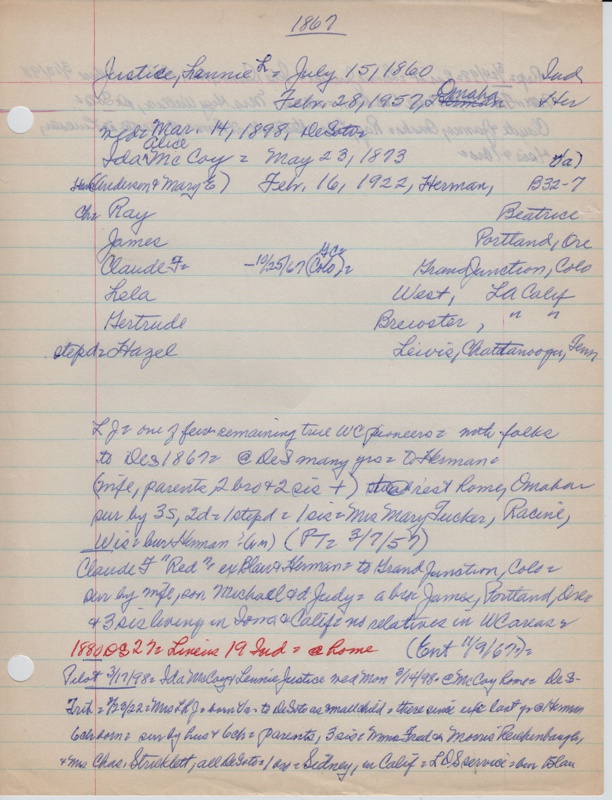 1867
Justice, Lannie L = July 15, 1860 Ind
Feb. 28, 1957, Omaha Her
wed = Mar. 14, 1898, DeSoto
Ida Alice McCoy = May 23, 1873 Va)
(Anderson & Mary E) Feb. 16, 1922, Herman, B32-7
Ch = Ray Beatrice
James Portland, Ore
Claude F = - 10/25/67 (Colo) = Grand Junction, Colo
Lela West, LA Calif
Gertrude Brewster, " "
stepd = Hazel Lewis, Chattanooga, Tenn
L J = one of few remaining true WC pioneers = with folks
to DeS 1867 = @ DeS many yrs = to Herman =
(wife, parents, 2 bro & 2 sis +) rest home, Omaha
sur by 3S, 2d = 1 stepd = 1 sis = Mrs Mary Tucker, Racine,
Wis = bur Herman (PT = 3/7/57)
Claude F "Red" ex Blair & Herman = to Grand Junction, Colo =
sur by wife, son Michael & d Judy = a bro James, Portland, Ore =
& 3 sis living in Iowa & Calif = no relatives in WC area =
1880 DS 27 = Linius 19 Ind = @ home (Ent 11/9/67) =
Pilot 3/17/98 = Ida McCoy & Lennie Justice wed Mon 3/14/98 = @ McCoy home = DeS -
Trib = 2/23/22 = Mrs L J = born Va = to DeSoto as small child = there since exc last yr @ Herman
6 ch born = sur by hus & 6 ch = parents, 3 sis = Mmes Fred & Morris Reichenbaugh,
& Mrs Chas. Stricklett, all DeSoto = 1 bro = Sidney, in Calif = LDS service = bur Blair